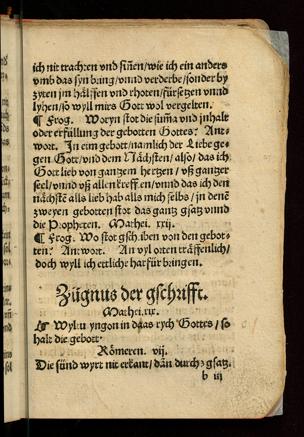 ich nit trachten vnd sinnen/wie ich ein anders
vmb das syn bring/vnnd verderbe/sonder by
zyten im hälffen vnd rhoten/fürsetzen vnnd
lyhen/so wyl mirs Gott wol vergelten.
¶ Frog. Woryn stot die suma vnd jnhalt
oder erfüllung der gebotten Gottes? Ant-
wort. In eim gebot/namlich der Liebe ge-
gen Gott/vnd dem Nächsten/also/das ich
Gott lieb von gantzem hertzen/vß gantzer
seel/vnnd vß allen krefften/vnnd das ich den
nächstē alls lieb hab alls mich selbs/in denē
zweyen gebotten stot das gantz gsatz vnnd
die Propheten. Mathei. xxij.
¶ Frog. Wo stot gschriben von den gebot-
ten? Antwort. An vyl orten träffenlich/
doch wyl ich ettliche harfür bringen.
Zügnus der gschrifft.
Mathei. xix.
Wyltu yngon in das rych Gottes/so
halt die gebott.
Römeren. vij.
Die sünd wyrt nit erkant/dān durchs gsatz.
b iij